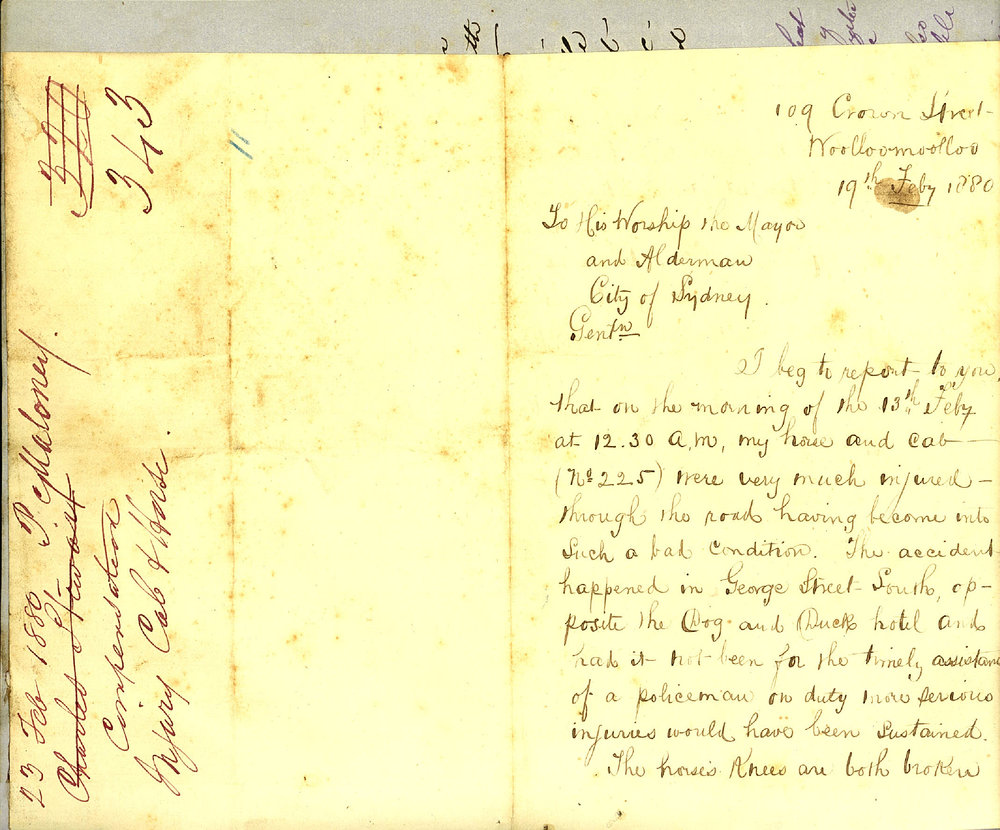 370
343
11
23 Feb 1880 P. Maloney.
Charles Stewart
Compensation
Injury Cab & Horse.
109 Crown Street
Woolloomoolloo
19th Feby 1880
To His Worship the Mayor
and Alderman
City of Sydney.
Gentn
I beg to report to you,
that on the morning of the 13th Feby
at 12.30 A.M, my horse and cab
(No 225) were very much injured
through the road having become into
Such a bad condition. The accident
happened in George Street South, op-
posite the Dog and Duck hotel and
had it not been for the timely assistan
of a policeman on duty more serious
injuries would have been Sustained.
The horses Knees are both broken